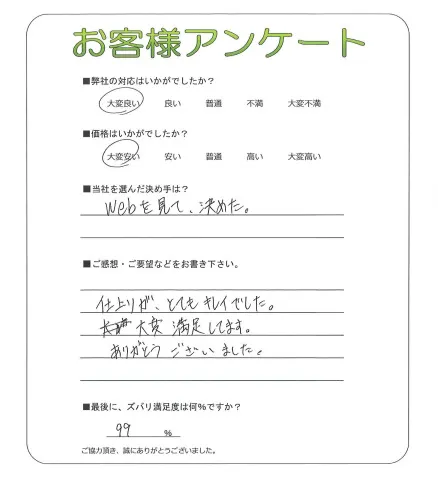 お客様アンケート
■弊社の対応はいかがでしたか?
大変良い 良い 普通 不満 大変不満
■価格はいかがでしたか?
大変安い 安い 普通 高い 大変高い
■当社を選んだ決め手は?
Webを見て、決めた。
■ご感想・ご要望などをお書き下さい。
仕上りが、とてもキレイでした。
大変 満足してます。
ありがとう ございました。
■最後に、ズバリ満足度は何%ですか?
99 %
ご協力頂き、誠にありがとうございました。